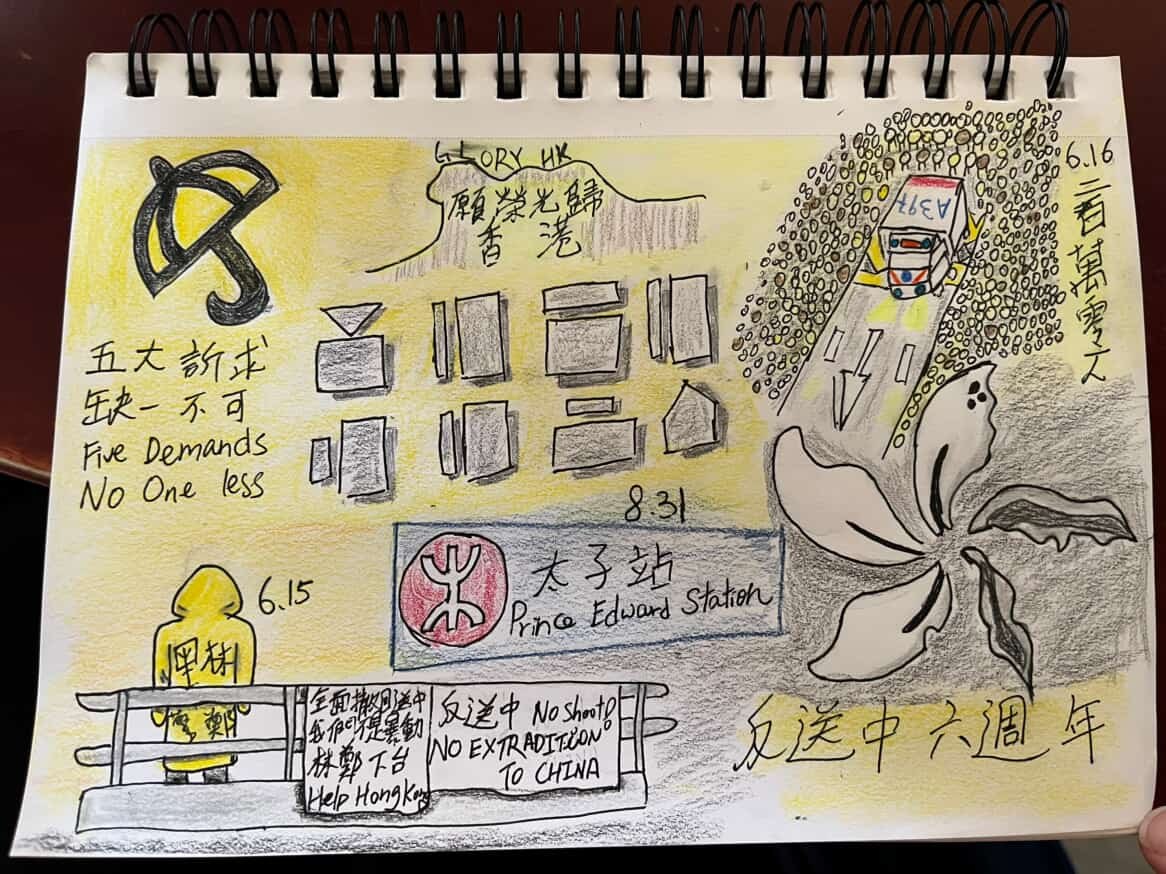 GLORY HK
願榮光歸
香港
A397
6.16
二百萬零一人
五大訴求
缺一不可
Five Demands
No One less
8.31
太子站
Prince Edward Station
6.15
黑林
警鄭
全面撤回送中
我們不是暴動
林鄭下台
Help HongKong
反送中 No shoot!
NO EXTRADITION
TO CHINA
反送中六週年